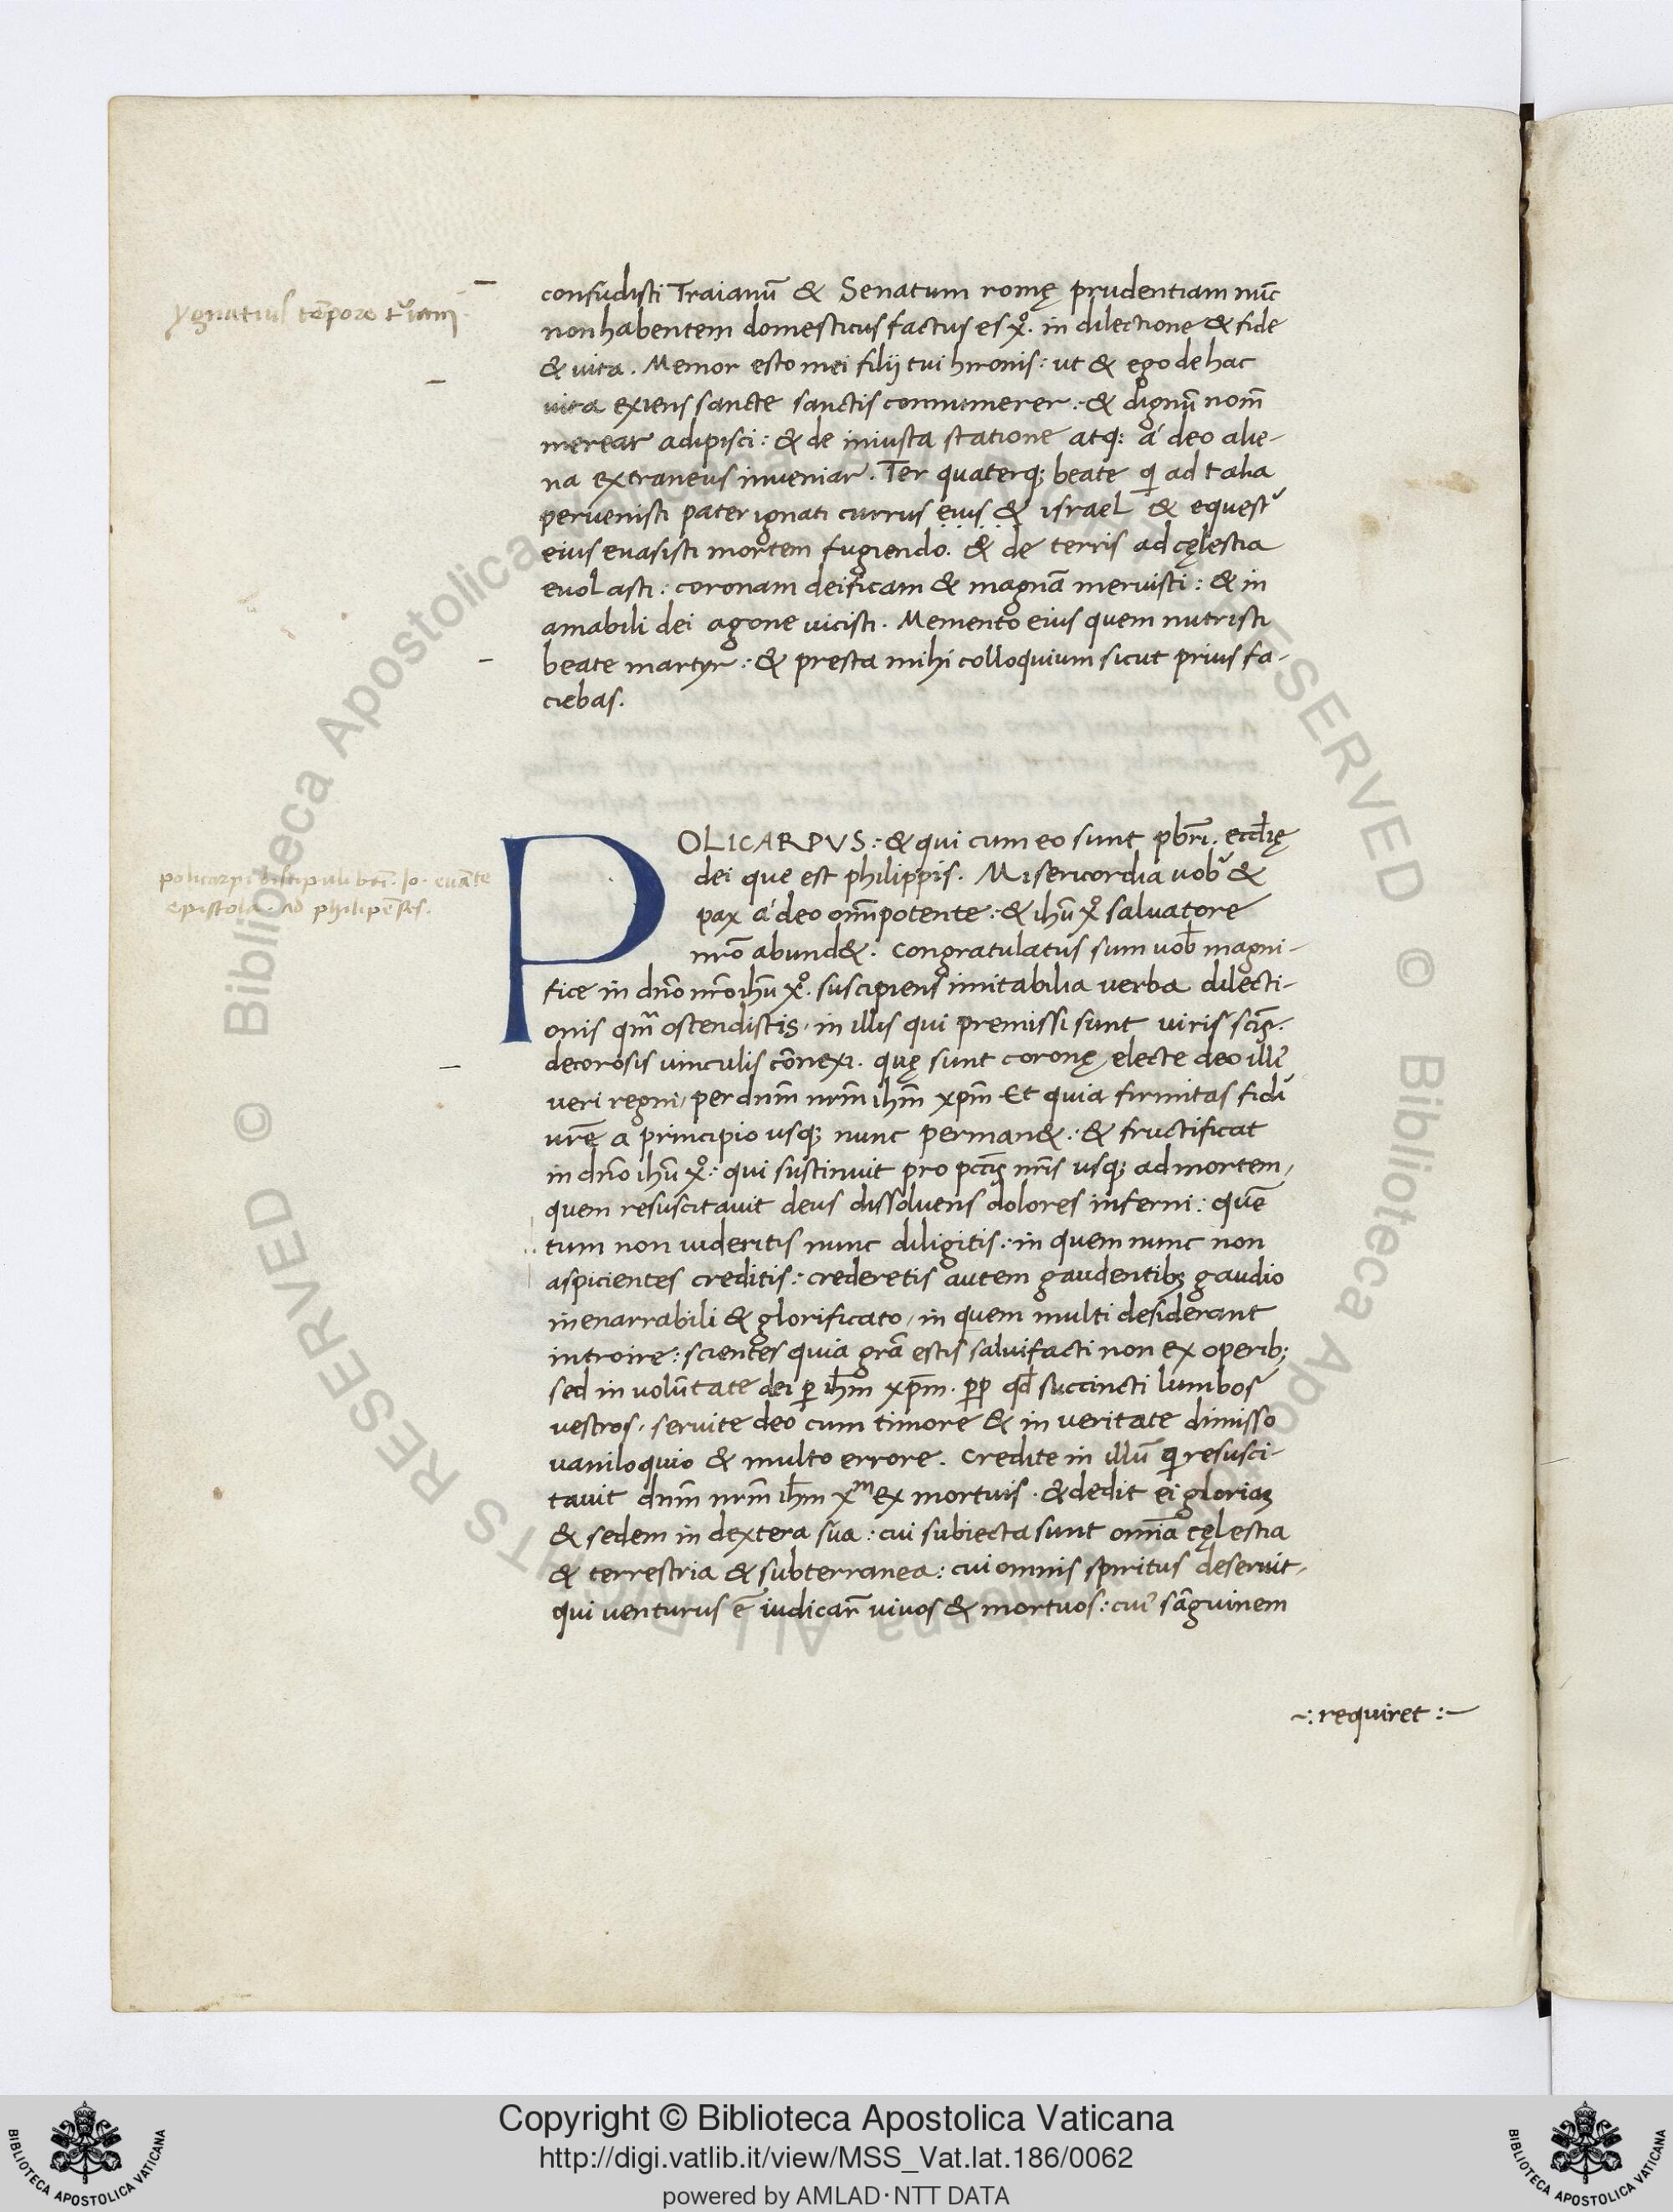 ygnatius tēpore traiani
confudisti Traianū & Senatum romę prudentiam nūc
non habentem domesticus factus es xº. in dilectione & fide
& vita. Memor esto mei filij tui hironis: ut & ego de hac
vita exiens sancte sanctis connumerer: & dignū nom̄
merear adipisci: & de iniusta statione atq: a deo alie-
na extraneus inueniar. Ter quaterq; beate q ad talia
peruenisti pater ignati currus eius & israel & equest
eius euasisti mortem fugiendo. & de terris ad cęlestia
euolasti: coronam deificam & magnā meruisti: & in
amabili dei agone vicisti. Memento eius quem nutristi
beate martyr: & presta mihi colloquium sicut prius fa-
ciebas.
policarpi discipuli bti. Io. euāte
epistola. ad philipēses.
POLICARPVS: & qui cum eo sunt pbr̄i. eccl̄ię
dei que est philippis. Misericordia uob & 
pax a deo omīpotente: & ihū xº saluatore
nr̄o abund&. Congratulatus sum uob magni-
fice in dn̄o nr̄o ihū xº. suscipiens imitabilia verba dilecti-
onis qm̄ ostendistis, in illis qui premissi sunt viris scīs.
decorosis vinculis cōnexi. quę sunt coronę electe deo illi
veri regni, per dnm̄ nrm̄ ihm̄ xpm̄ Et quia firmitas fidi
vrę̄ a principio usq; nunc perman&: & fructificat
in dn̄o ihū xº: qui sustinuit pro pctīs nr̄is usq; ad mortem,
quem resuscitauit deus dissoluens dolores inferni: quē
tum non videritis nunc diligitis: in quem nunc non
aspicientes creditis: crederetis autem gaudentibꝫ gaudio
inenarrabili & glorificato, in quem multi desiderant
introire: scientes quia grā estis saluifacti non ex operib;
sed in voluntate dei ꝑ ihm̄ xpm̄. pp qd succincti lumbos
vestros, seruite deo cum timore & in veritate dimisso
vaniloquio & multo errore. Credite in illū q resusci-
tauit dnm̄ nrm̄ ihm̄ xm ex mortuis. & dedit ei gloriaꝫ
& sedem in dextera sua: cui subiecta sunt omīa cęlestia
& terrestria & subterranea: cui omnis spiritus deseruit,
qui venturus ē iudicar̄ viuos & mortuos: cui sāguinem
~: requiret :~
Copyright © Biblioteca Apostolica Vaticana
http://digi.vatlib.it/view/MSS_Vat.lat.186/0062
powered by AMLAD・NTT DATA
BIBLIOTECA APOSTOLICA VATICANA
BIBLIOTECA APOSTOLICA VATICANA